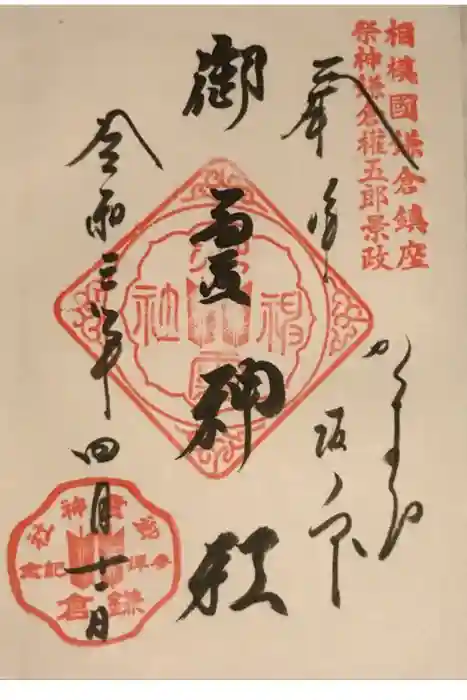 相模國鎌倉鎮座
祭神鎌倉權五郎景政
奉拝
かまくら
坂ノ下
御霊神社
令和三年四月十一日
神社
参拝記念
鎌倉